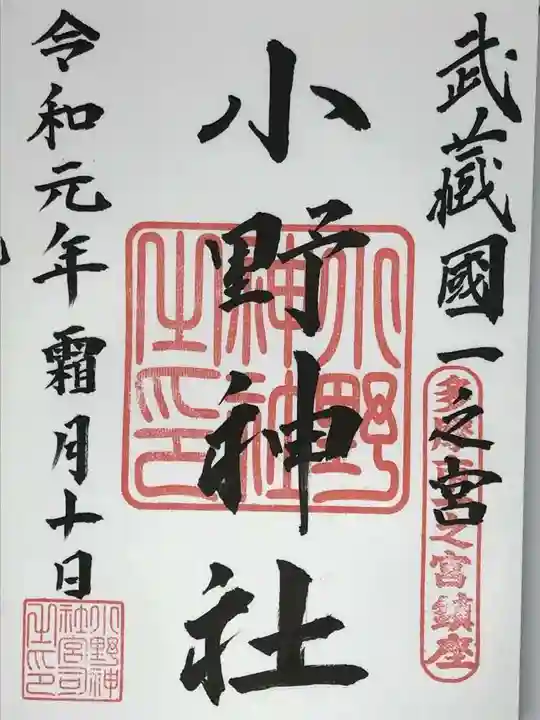 武蔵國一之宮
多摩市一之宮鎮座
小野神社
小野
神社
之印
令和元年霜月十日
小野神
社宮司
之印